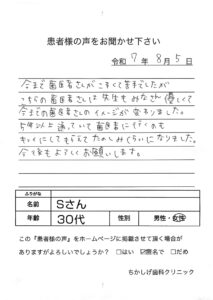 患者様の声をお聞かせ下さい
令和 7 年 8 月 5 日
今まで歯医者さんがこわくて苦手でしたが
こちらの歯医者さんは先生もみなさん優しくて
今までの歯医者さんのイメージが変わりました。
5年以上通っていて歯医者に行くのも
キレイにしてもらえてたのしみぐらいになりました。
今後もよろしくお願いします。
ふりがな
名前 Sさん
年齢 30代 性別 男性・女性
この『患者様の声』をホームページに掲載させて頂く場合が
ありますがよろしいでしょうか？ □はい ☑匿名で □だめ
ちかしげ歯科クリニック